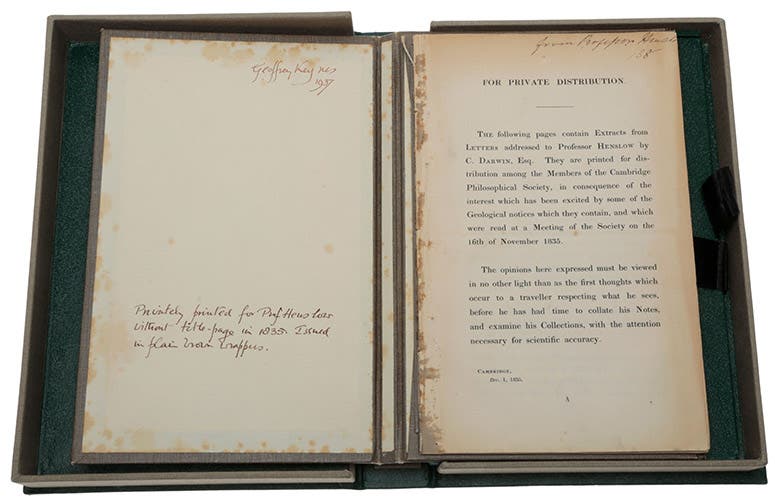 Geoffrey Keynes
1937
Privately printed for Prof Henslow
without title-page in 1835. Issued
in plain brown wrappers.
from Professor
FOR PRIVATE DISTRIBUTION.
THE following pages contain Extracts from
LETTERS addressed to Professor HENSLOW by
C. DARWIN, Esq. They are printed for dis-
tribution among the Members of the Cambridge
Philosophical Society, in consequence of the
interest which has been excited by some of the
Geological notices which they contain, and which
were read at a Meeting of the Society on the
16th of November 1835.
The opinions here expressed must be viewed
in no other light than as the first thoughts which
occur to a traveller respecting what he sees,
before he has had time to collate his Notes,
and examine his Collections, with the attention
necessary for scientific accuracy.
CAMBRIDGE,
DEC. 1, 1835.
A